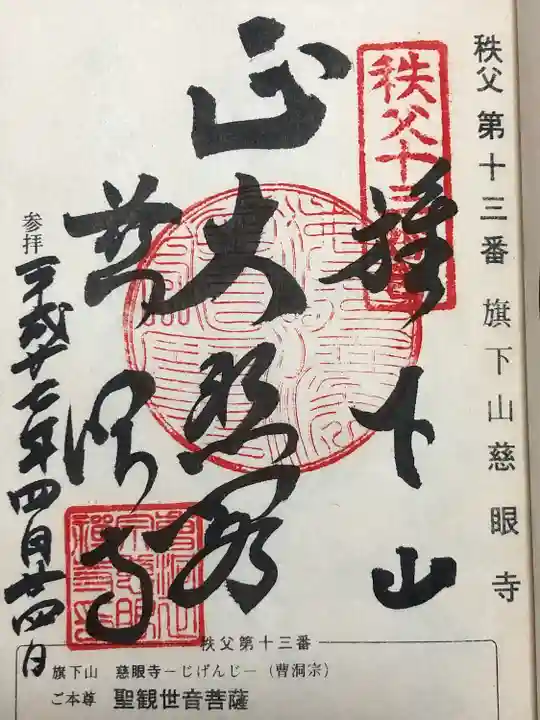 秩父 第十三番 旗下山 慈眼寺
秩父十三
旗下山
正大悲殿
慈眼寺
参拝
平成廿七年四月廿四日
秩父第十三番
旗下山 慈眼寺－じげんじ－（曹洞宗）
ご本尊 聖観世音菩薩